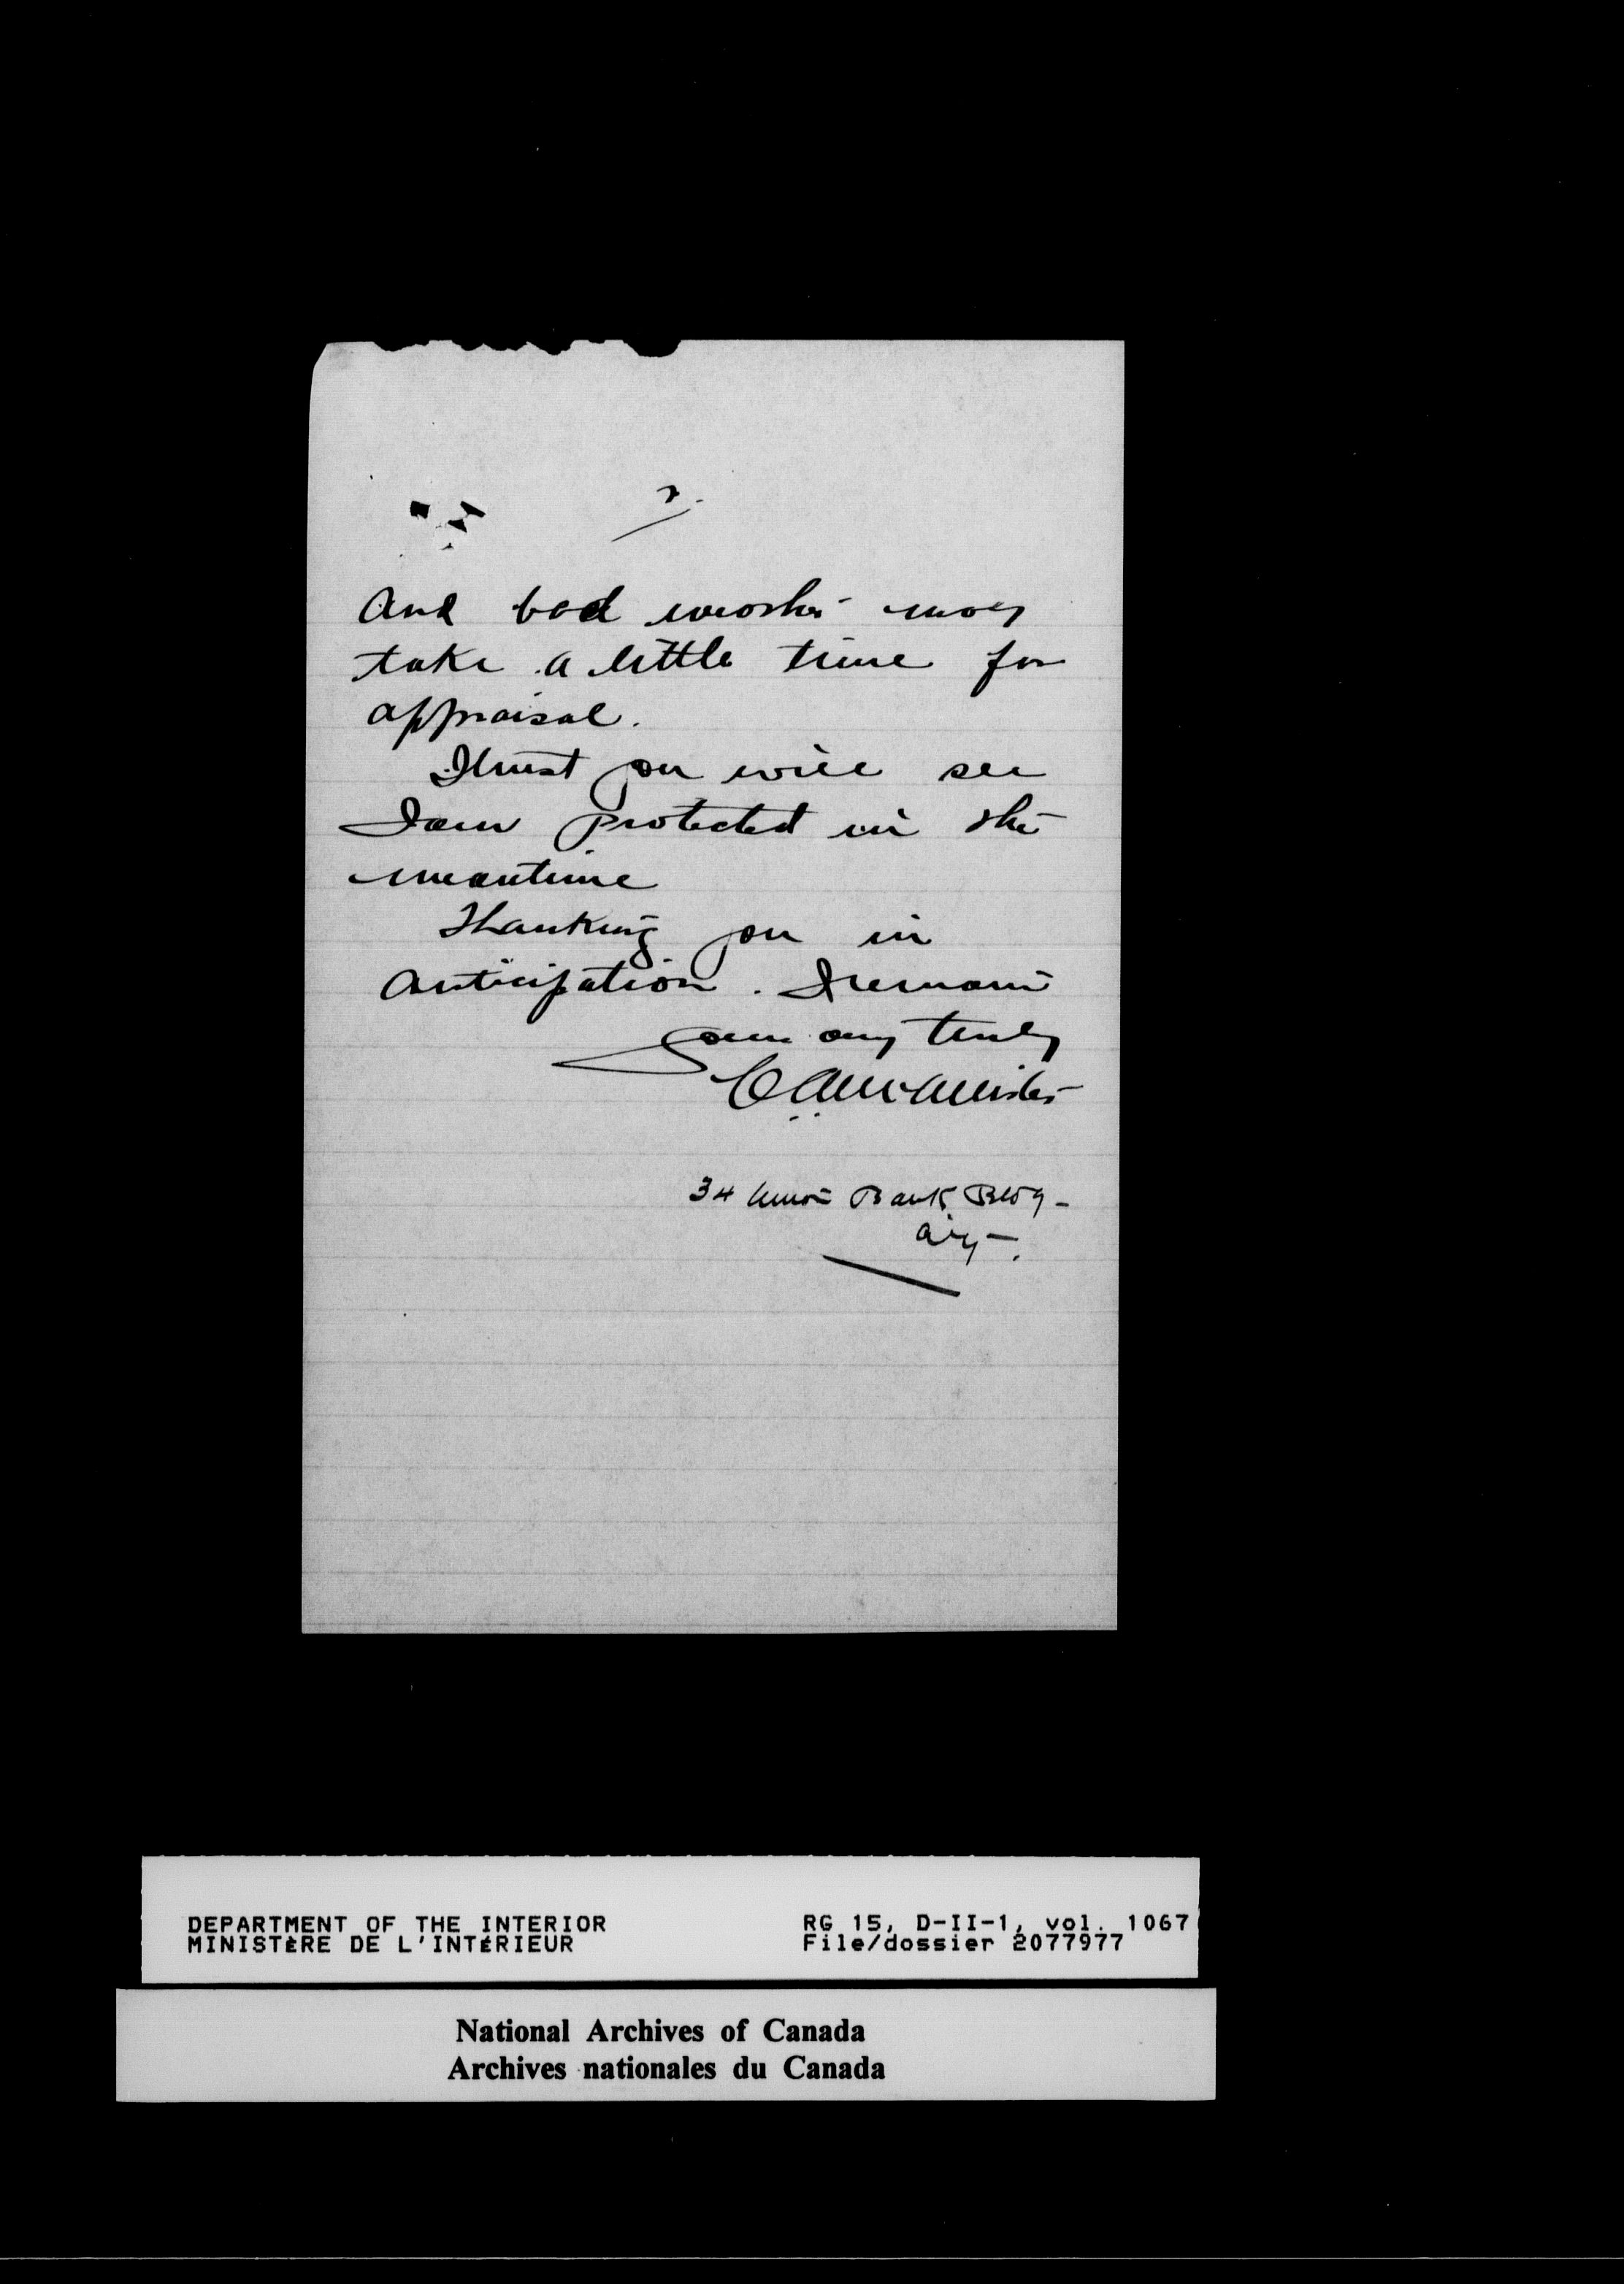 2.
And bad weather may
take a little time for
appraisal.
I trust you will see
I am protected in the
meantime
Thanking you in
anticipation. I remain
Yours very truly
C A McAllister
34 Union Bank Bldg -
City -.
DEPARTMENT OF THE INTERIOR
MINISTÈRE DE L'INTÉRIEUR
RG 15, D-II-1, vol. 1067
File/dossier 2077977
National Archives of Canada
Archives nationales du Canada